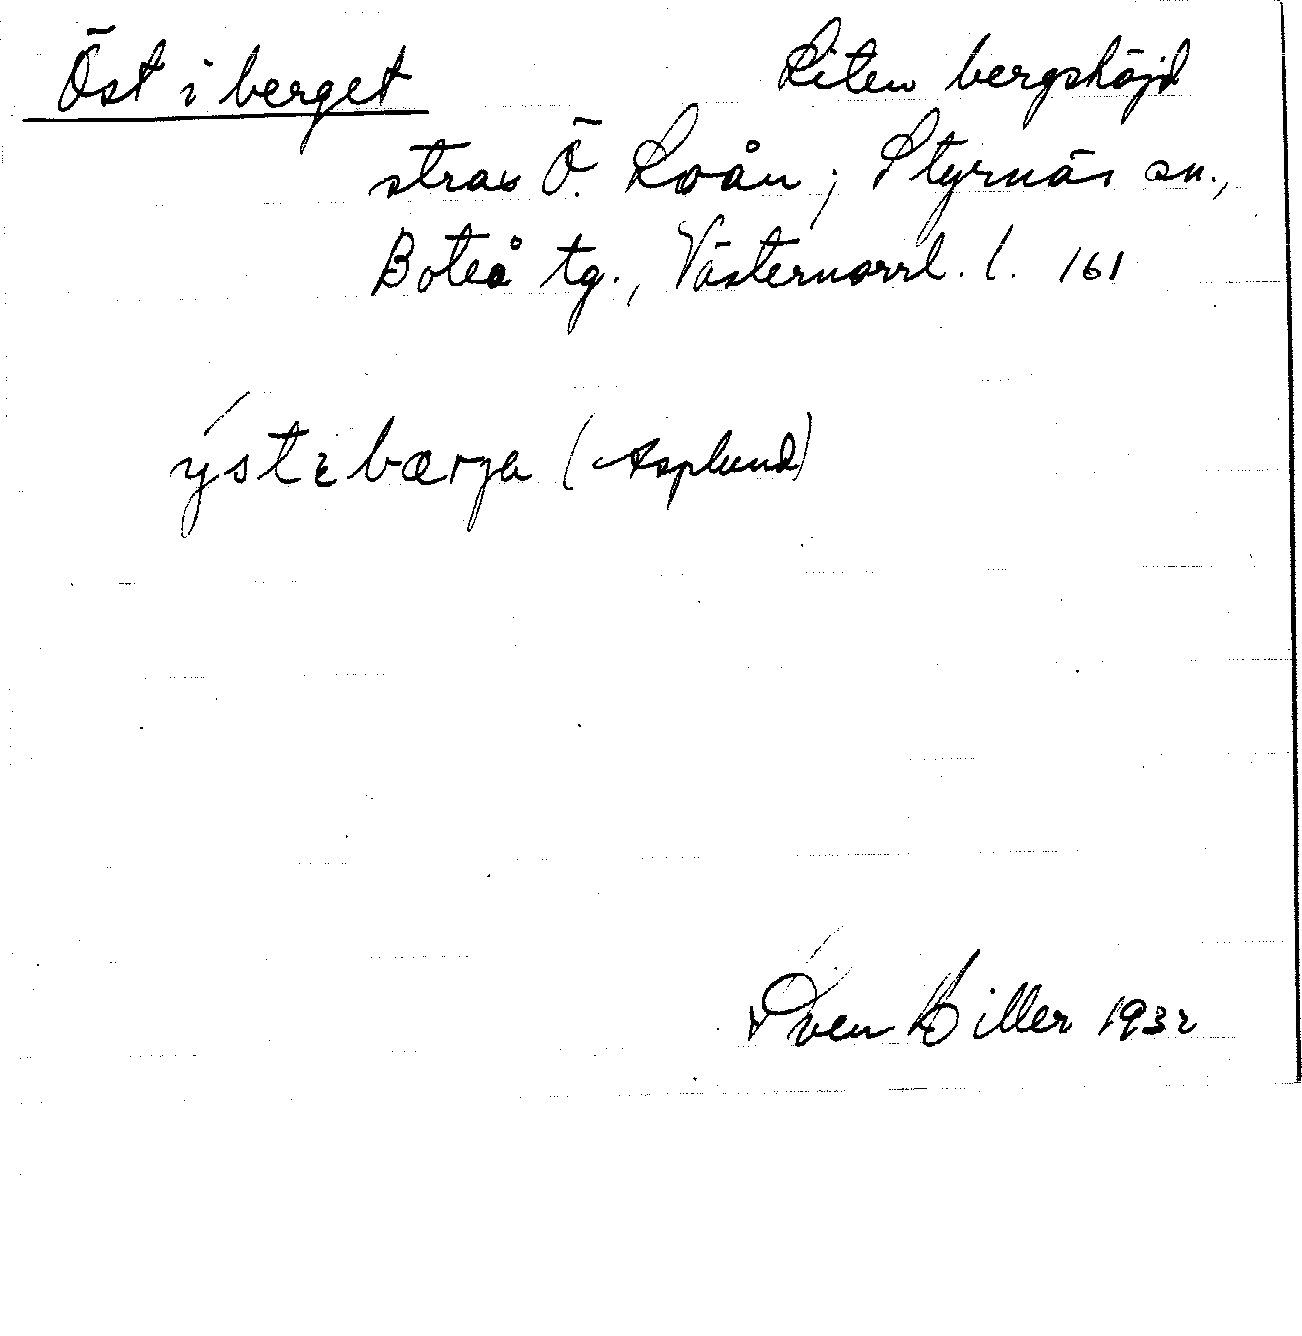 Öst i berget Liten bergshöjd
strax Ö. Loån; Styrnäs sn.,
Boteå tg., Västernorrl. l. 161
ýstɛbærja (Asplund)
Sven Hiller 1932